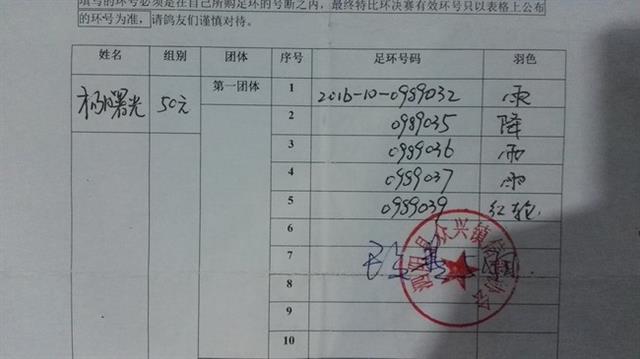 填写的环号必须是在自己所购足环的号断之内，最终特比环决赛有效环号只以表格上公布
的环号为准，请鸽友们谨慎对待。
姓名 组别 团体 序号 足环号码 羽色
杨曙光 50元 第一团体 1 2016-10-0989032 雨
2 0989035 降
3 0989036 雨
4 0989037 雨
5 0989039 红轮
6
7
8
9
10